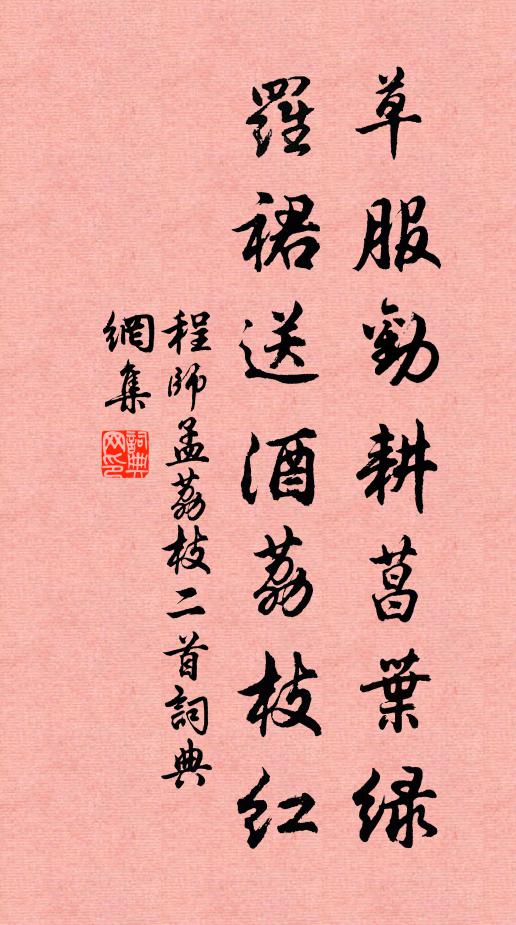 草服勸耕菖葉綠
羅裙送酒荔枝紅
程師孟荔枝二首詞典
網集
詞典網印